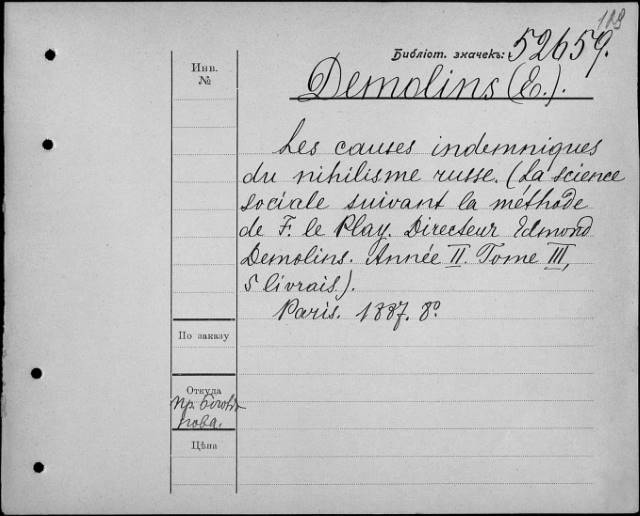 119
Библіот. значекъ: 52659.
Инв.
№
Demolins (E.).
Les causes indemniques
du nihilisme russe. (La science
sociale suivant la méthode
de F. le Play. Directeur Edmond
Demolins. Année II. Tome III,
5 livrais.).
Paris. 1887. 8º.
По заказу
Откуда
пр.
Цѣна